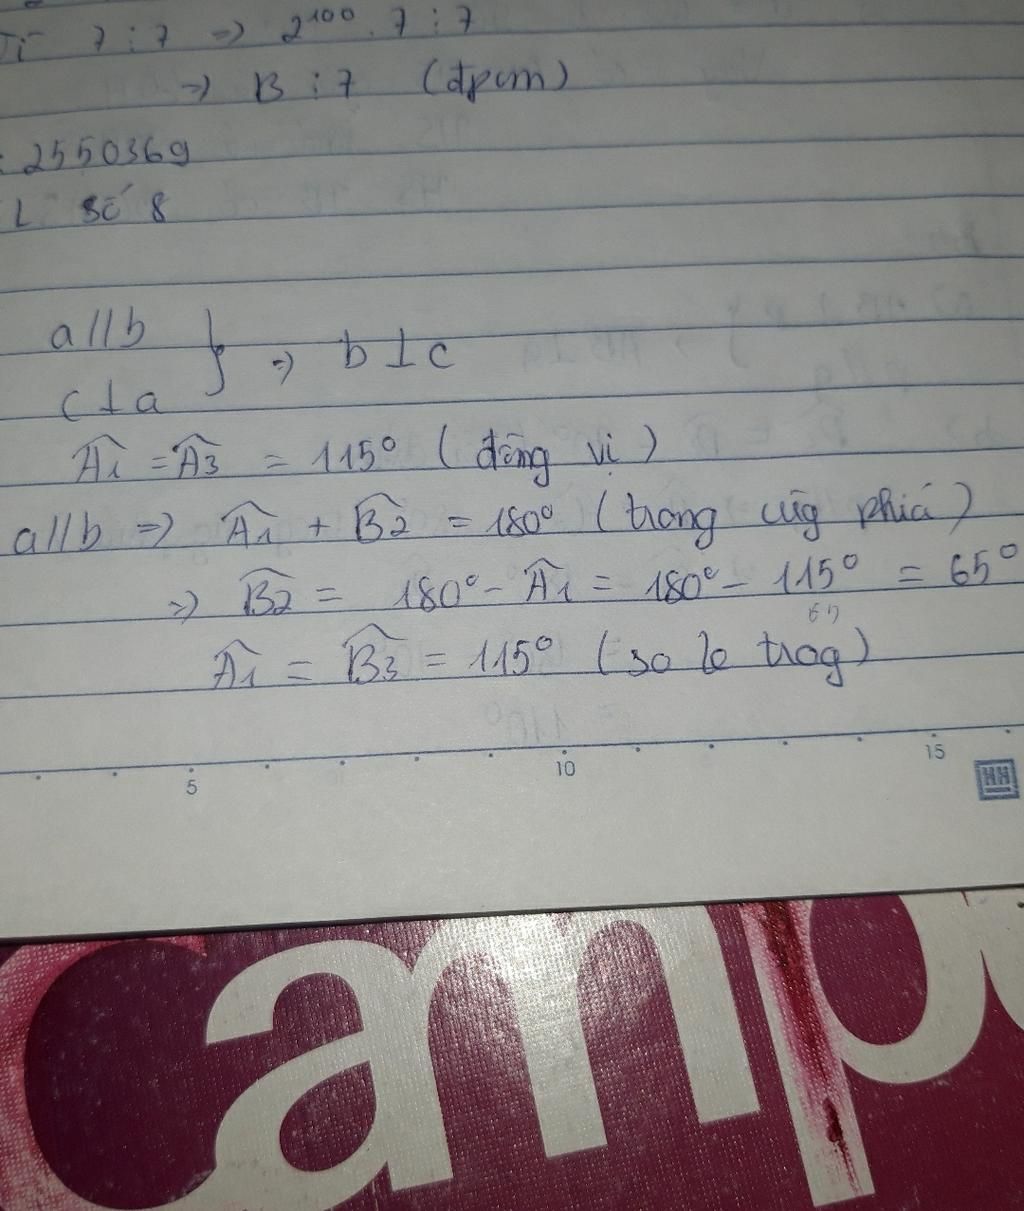 7 ⋮ 7 => 2¹⁰⁰ . 7 ⋮ 7
=> B ⋮ 7 (đpcm)
: 2550369
số 8
a//b
c⊥a } => b ⊥ c
Â1 = Â3 = 115° (đồng vị)
a//b => Â1 + B̂2 = 180° (trong cùg phía)
=> B̂2 = 180° - Â1 = 180° - 115° = 65°
Â1 = B̂3 = 115° (so le trog)
5 10 15
camp